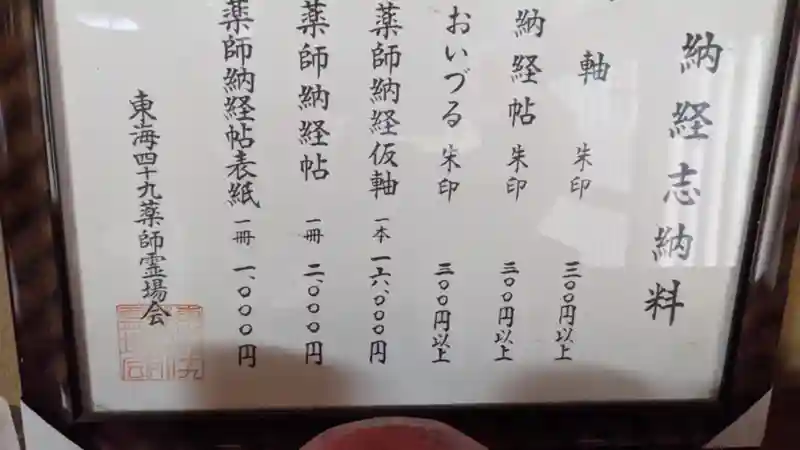 納経志納料
軸 朱印 三〇〇円以上
納経帖 朱印 三〇〇円以上
おいづる 朱印 三〇〇円以上
薬師納経仮軸 一本 一六、〇〇〇円
薬師納経帖 一冊 二、〇〇〇円
薬師納経帖表紙 一冊 一、〇〇〇円
東海四十九薬師霊場会